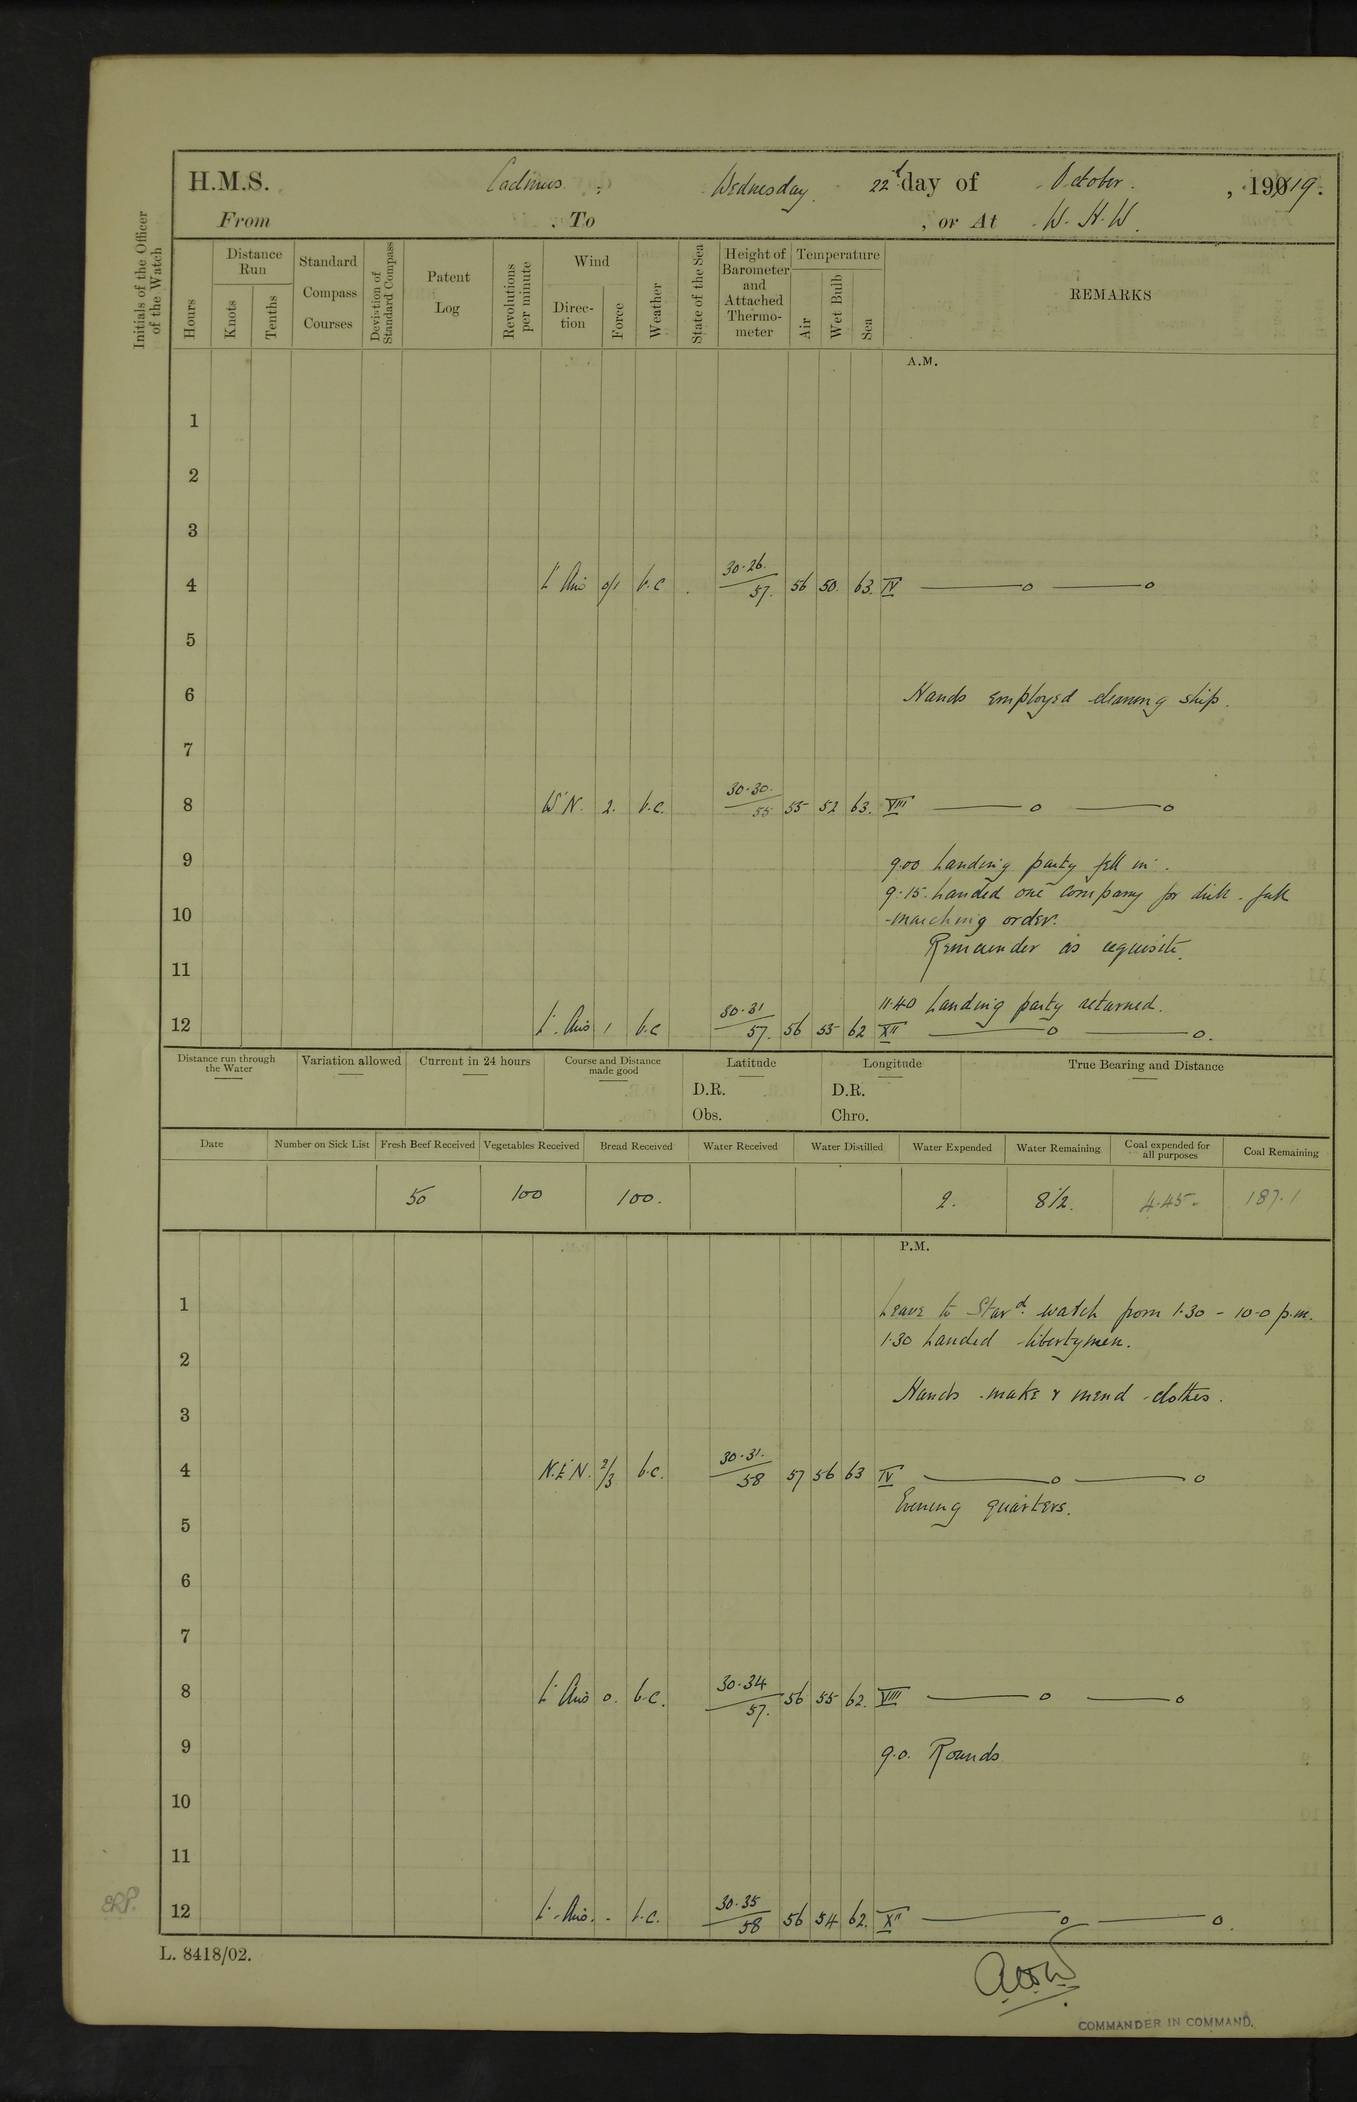 H.M.S. Cadmus. Wednesday. 22nd day of October. , 19019.
From . To , or At W. H. W.
Initials of the Officer of the Watch
Hours
Distance Run
Knots
Tenths
Standard Compass Courses
Deviation of Standard Compass
Patent Log
Revolutions per minute
Wind
Direction
Force
Weather
State of the Sea
Height of Barometer and Attached Thermometer
Temperature
Air
Wet Bulb
Sea
REMARKS
A.M.
1
2
3
4 Lt Airs 0/1 b.c 30.26. 57. 56 50. 63. IV
5
6 Hands employed cleaning ship.
7
8 W'N. 2. b.c. 30.30. 55 55 52 63. VIII
9 9.00 Landing party fell in.
9.15. Landed one company for drill. full
10 marching order.
Remainder as requisite.
11
11.40 Landing party returned.
12 Lt. Airs 1 b.c 30.31 57. 56 55 62 XII
Distance run through the Water
Variation allowed
Current in 24 hours
Course and Distance made good
Latitude
D.R.
Obs.
Longitude
D.R.
Chro.
True Bearing and Distance
Date Number on Sick List Fresh Beef Received Vegetables Received Bread Received Water Received Water Distilled Water Expended Water Remaining Coal expended for all purposes Coal Remaining
50 100 100. 2. 8 1/2. 4.45 187.1
P.M.
1 Leave to Stard. watch from 1.30 - 10.0 p.m.
1.30 Landed libertymen.
2
Hands make & mend clothes.
3
4 N.E'N. 2/3 b.c. 30.31. 58 57 56 63 IV
Evening quarters.
5
6
7
8 Lt Airs 0. b.c. 30.34 57. 56 55 62. VIII
9 9.0. Rounds
10
11
12 Lt. Airs. - b.c. 30.35 58 56 54 62. XII
ERP.
L. 8418/02.
COMMANDER IN COMMAND.